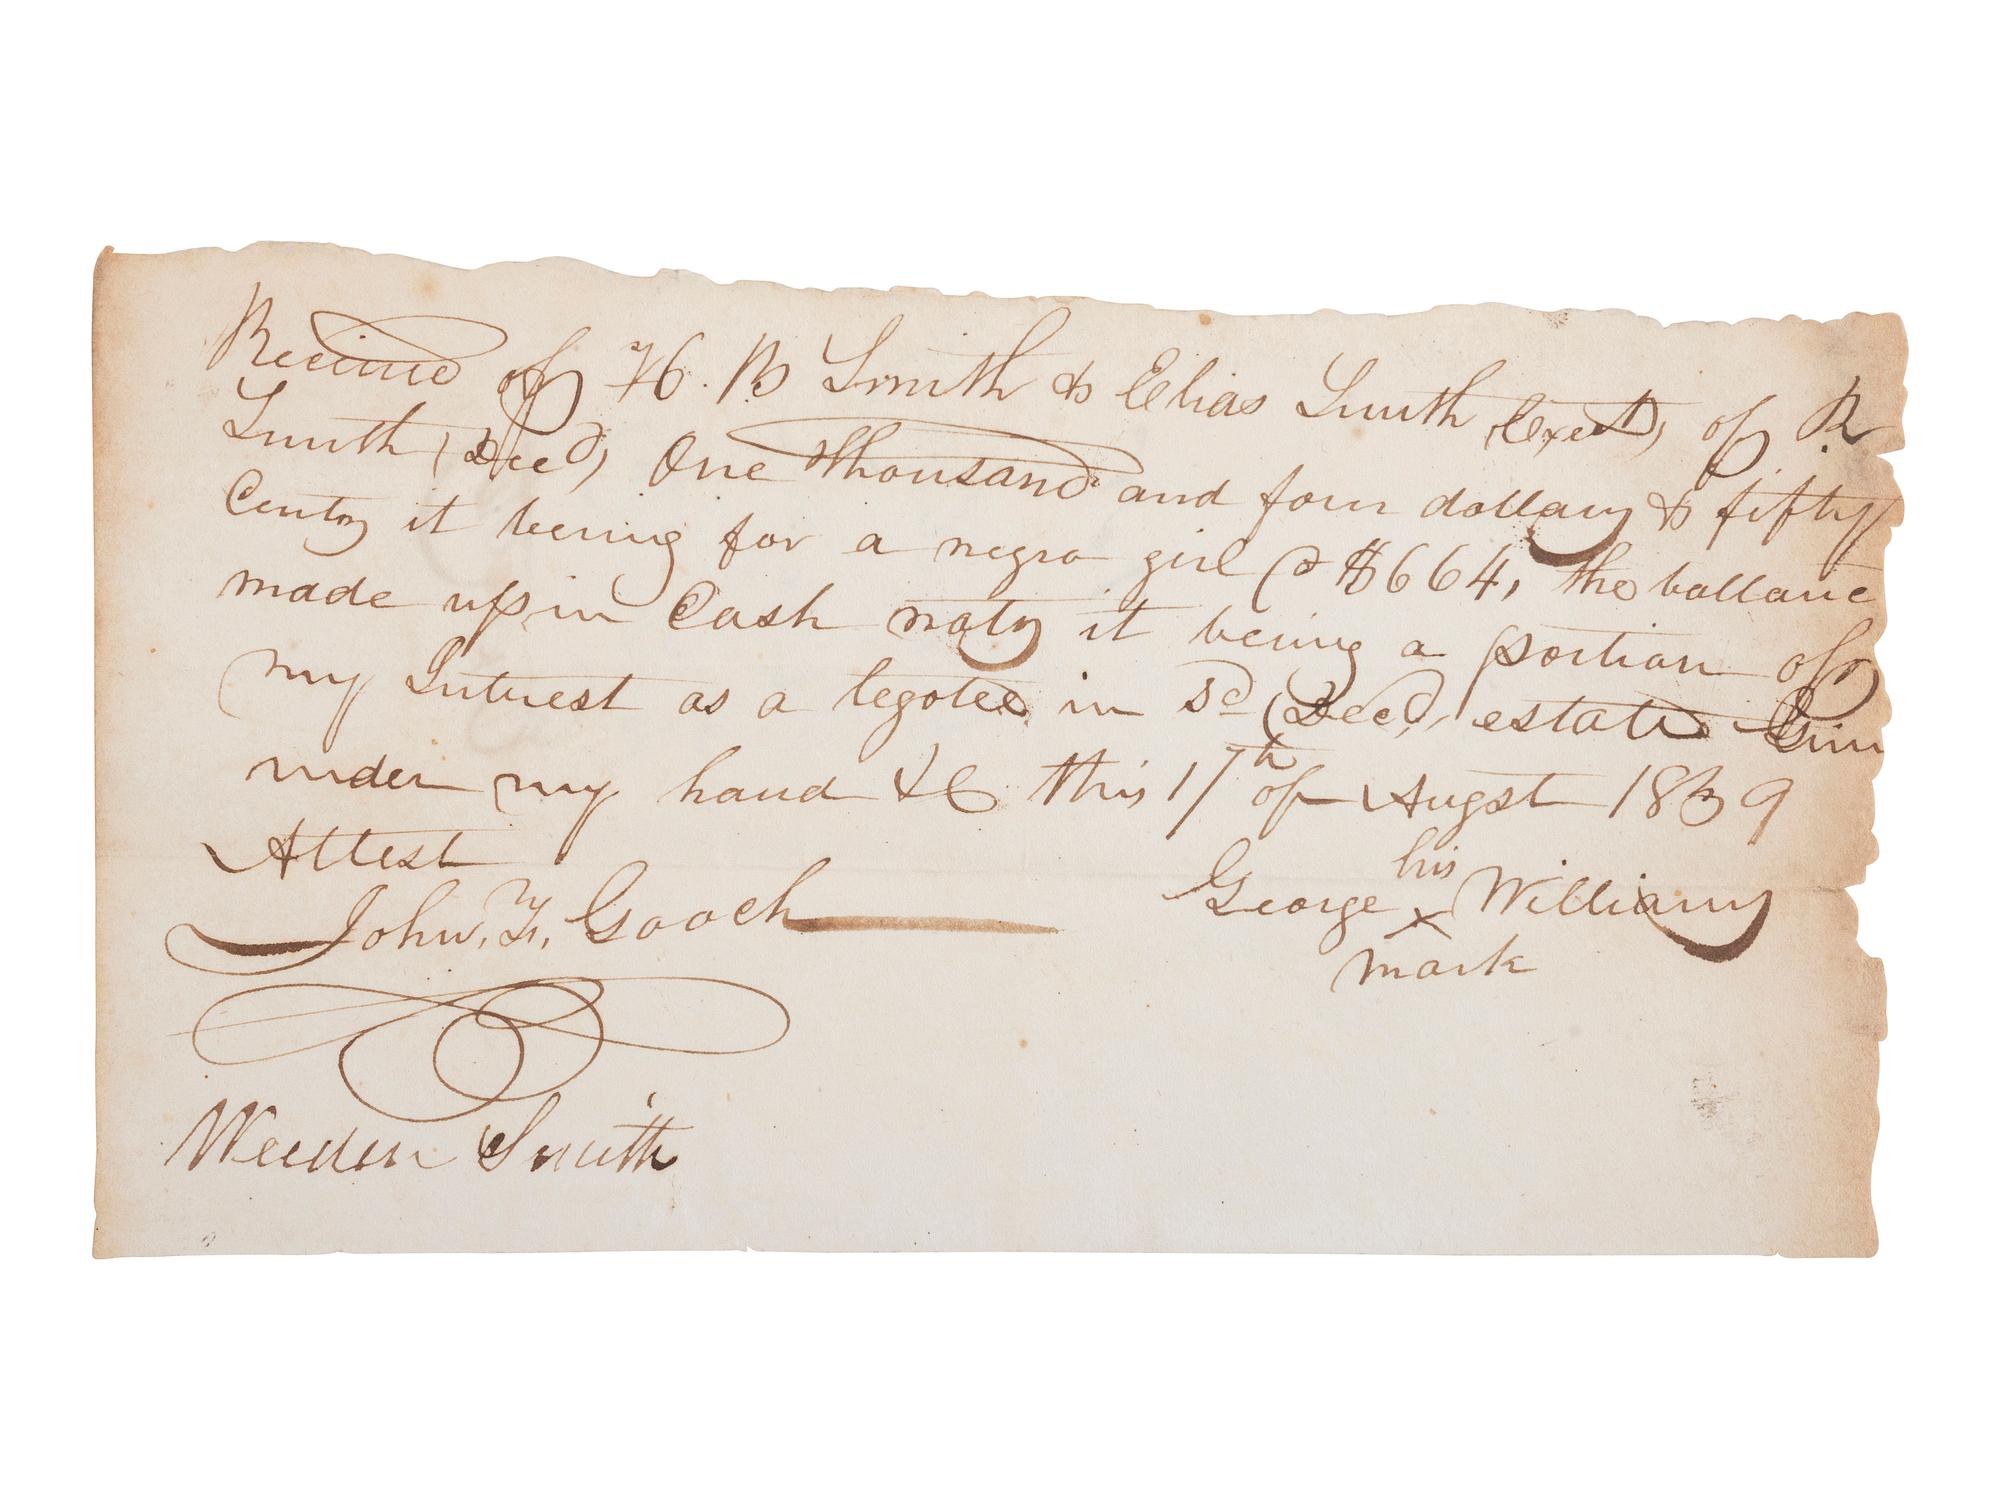 Received of H. B Smith & Elias Smith (Exet) of R
Smith (Decd) One thousand and four dollars & fifty
Cents it being for a negro girl @ $664, the ballance
made up in Cash nots it being a portion of
my Intrest as a legotee in sd (Decd) estate Givn
under my hand &C this 17th of Augst 1839
Attest
his
John. F. Gooch George x Williams
mark
Weeden Smith